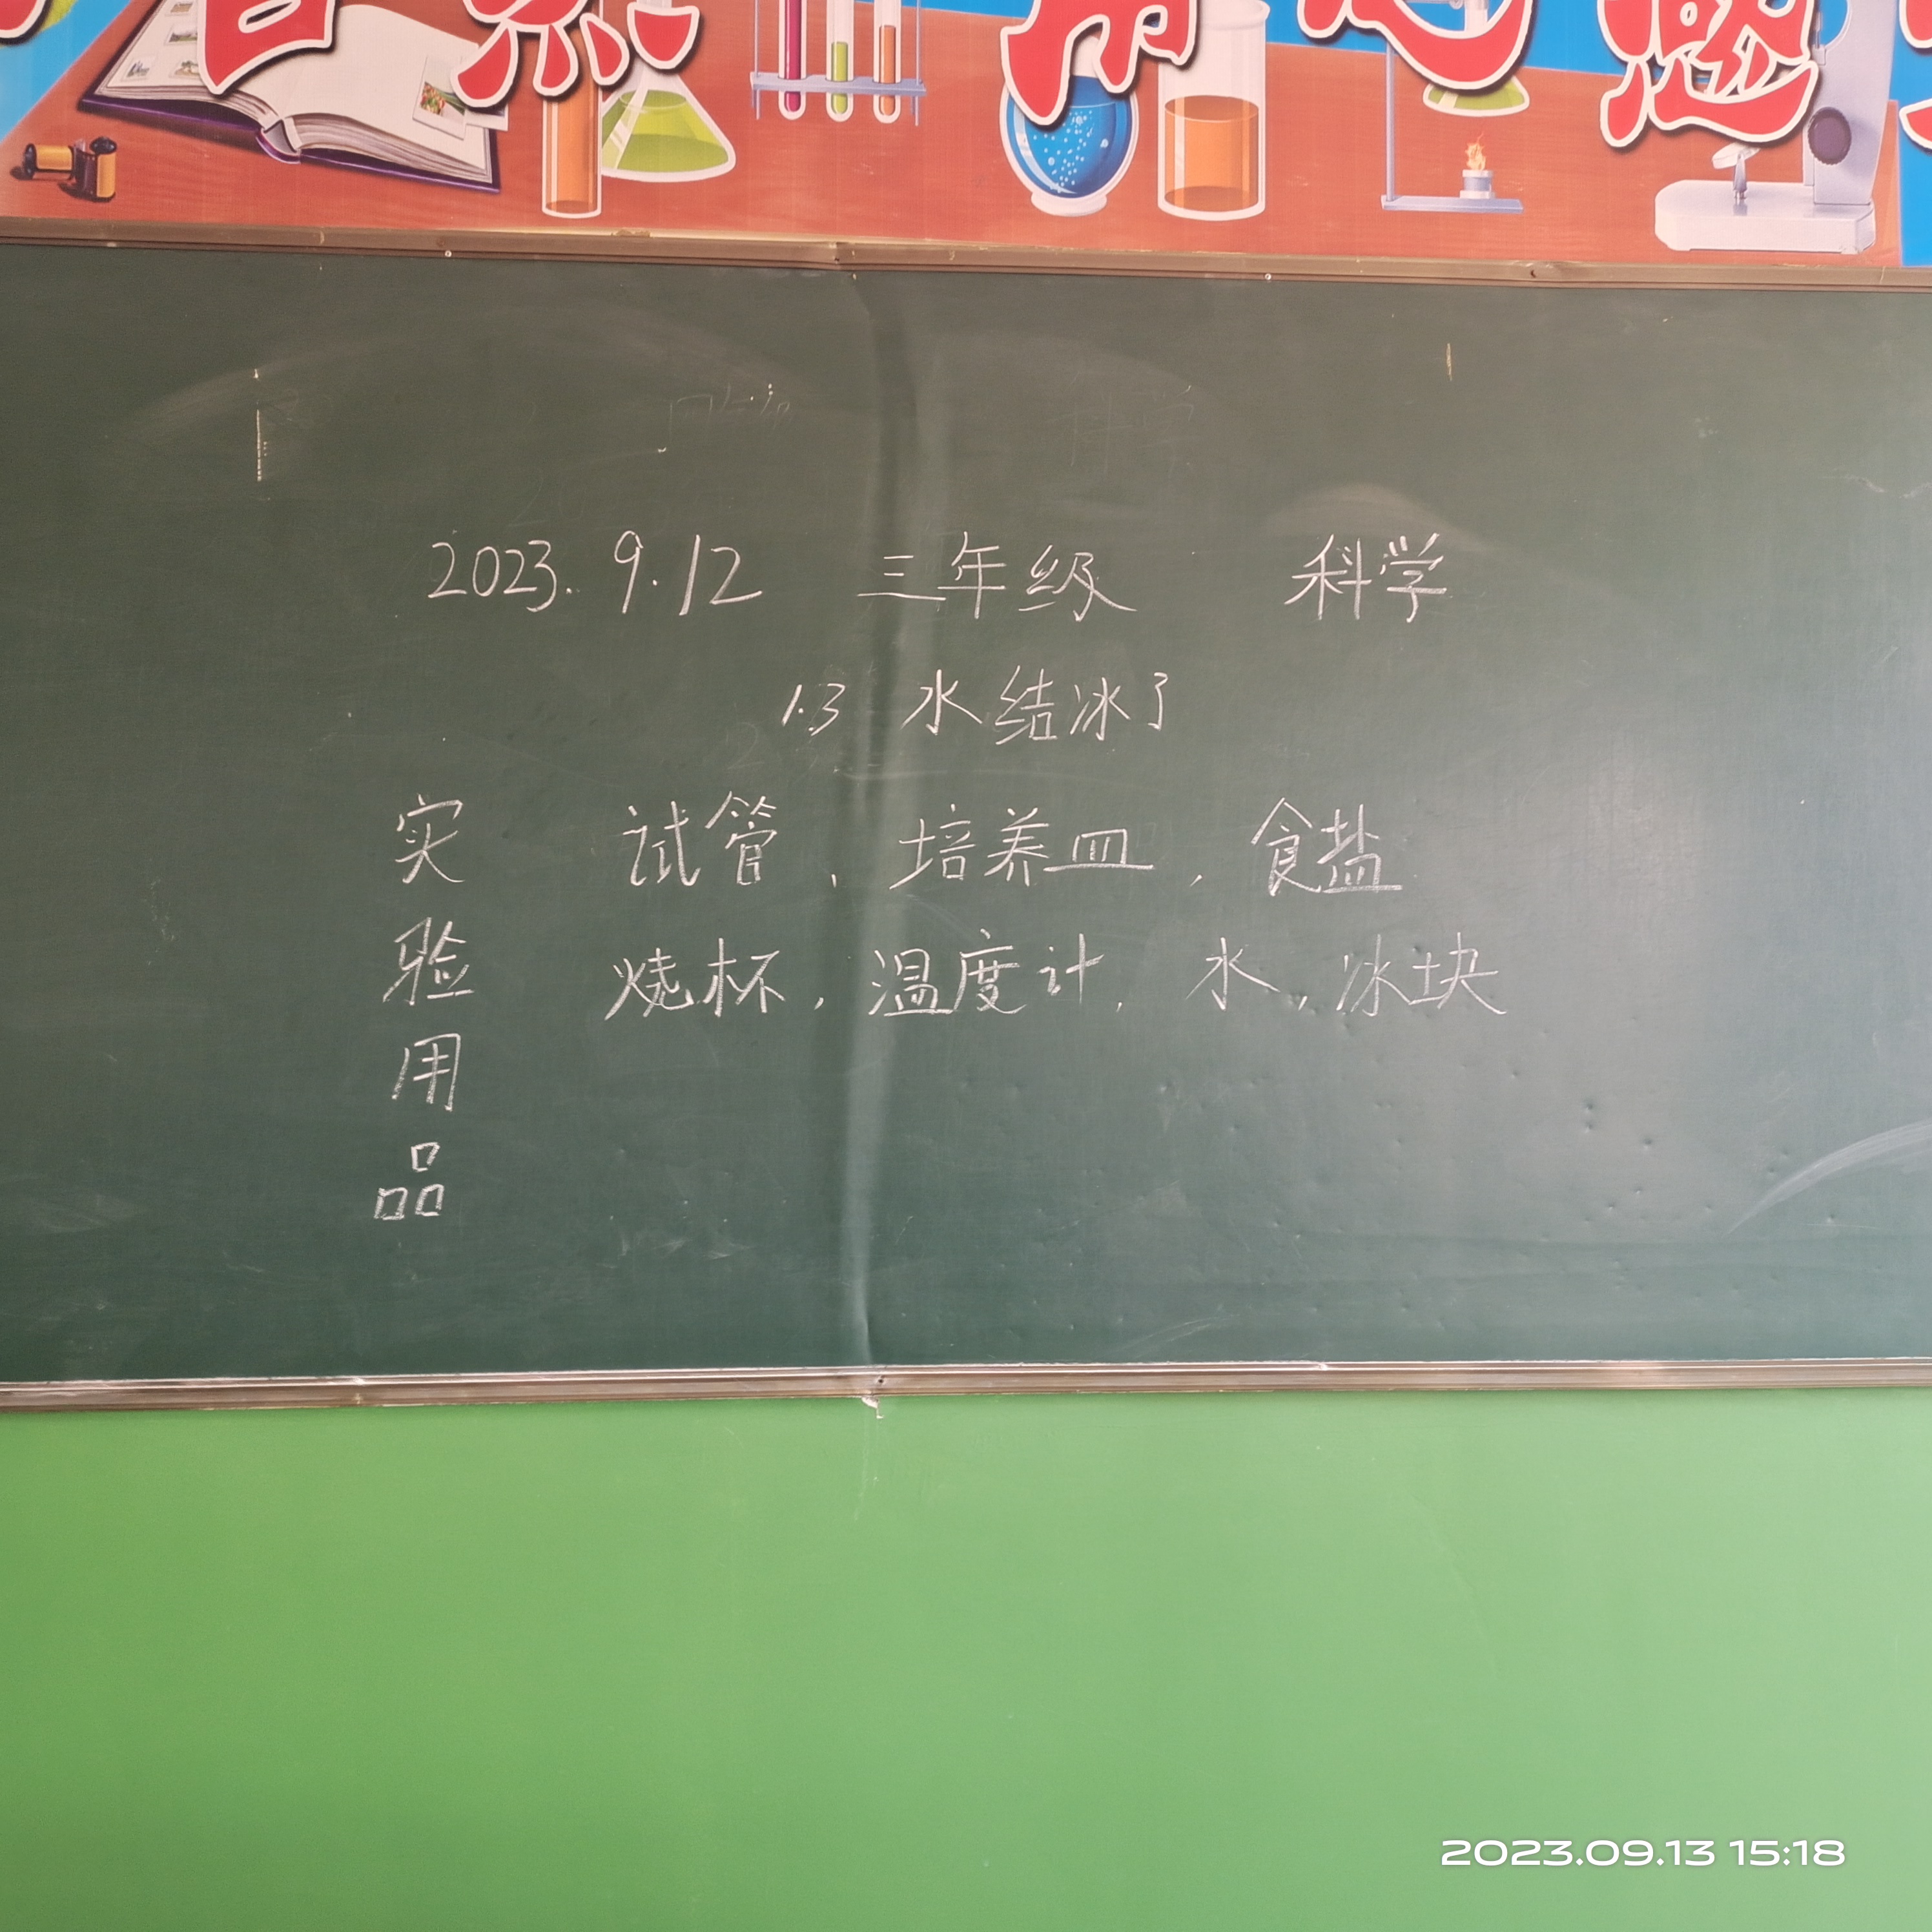 2023.9.12 三年级 科学
1.3 水结冰了
实验用品
试管,培养皿,食盐
烧杯,温度计,水,冰块
2023.09.13 15:18